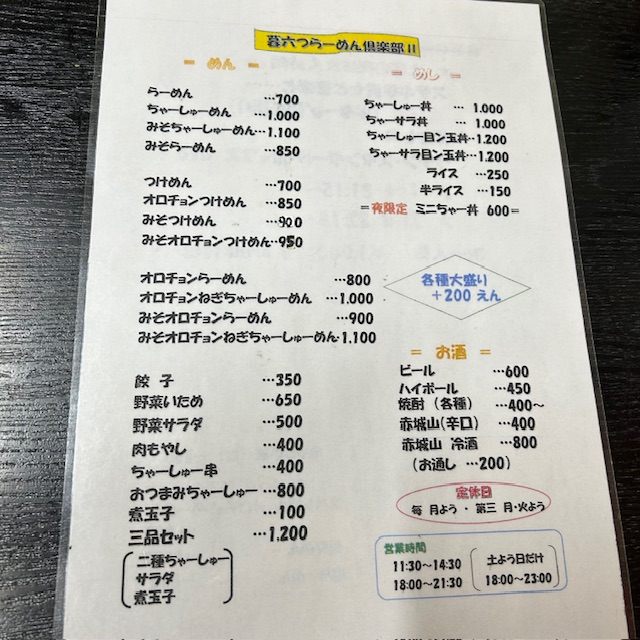 暮六つらーめん倶楽部 II
＝ めん ＝
らーめん …700
ちゃーしゅーめん …1.000
みそちゃーしゅーめん…1.100
みそらーめん …850
つけめん …700
オロチョンつけめん …850
みそつけめん
みそオロチョンつけめん…950
オロチョンらーめん …800
オロチョンねぎちゃーしゅーめん …1.000
みそオロチョンらーめん …900
みそオロチョンねぎちゃーしゅーめん・1,100
餃 子 …350
野菜いため …650
野菜サラダ …500
肉もやし …400
ちゃーしゅー串 …400
おつまみちゃーしゅー …800
煮玉子 …100
三品セット …1,200
二種ちゃーしゅー
サラダ
煮玉子
＝ めし ＝
ちゃーしゅー丼 … 1.000
ちゃーサラ丼 … 1.000
ちゃーしゅー目ン玉丼…1.200
ちゃーサラ目ン玉丼…1.200
ライス …250
半ライス …150
＝夜限定 ミニちゃー丼 600＝
各種大盛り
＋200 えん
＝ お酒 ＝
ビール …600
ハイボール …450
焼酎（各種） …400～
赤城山(辛口) …400
赤城山 冷酒 …800
（お通し …200）
定休日
毎 月よう ・ 第三 月・火よう
営業時間
11:30～14:30
18:00～21:30
土よう日だけ
18:00～23:00